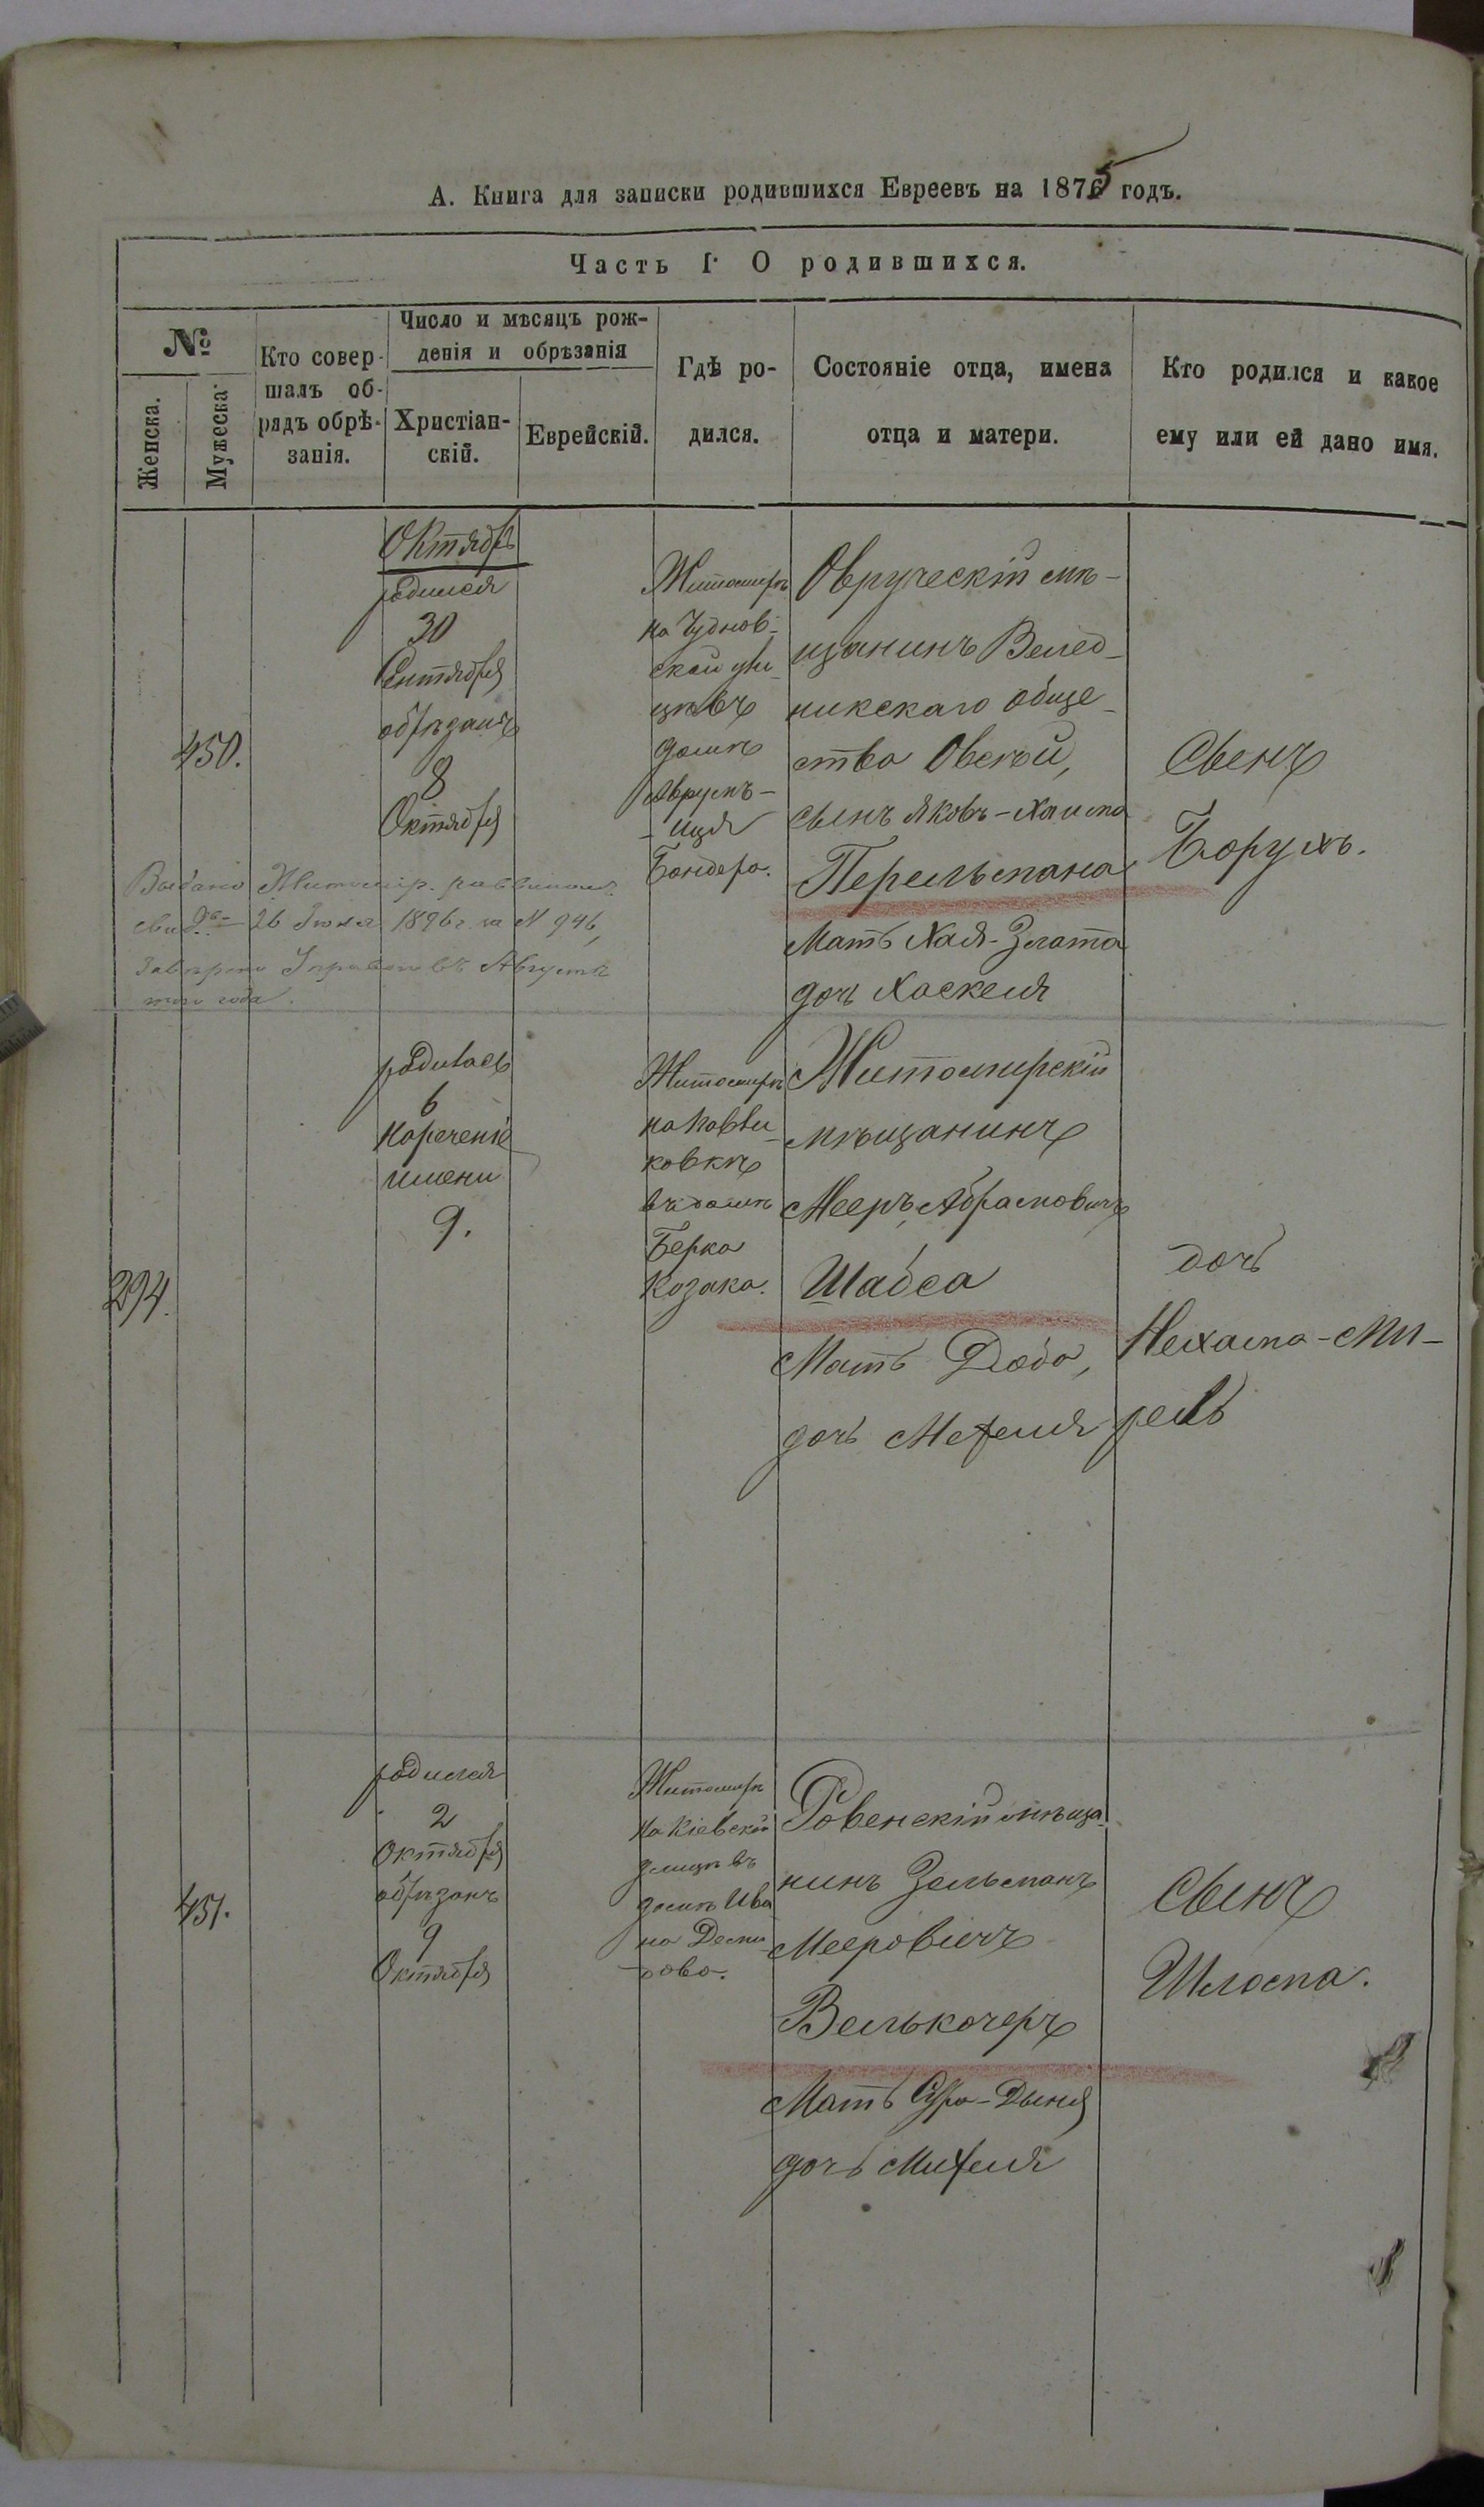 А. Книга для записки родившихся Евреевъ на 1875 годъ.
Часть I. О родившихся.
№
Женска.
Мужеска.
Кто совер-
шалъ об-
рядъ обрѣ-
занія.
Число и мѣсяцъ рож-
денія и обрѣзанія
Христіан-
скій.
Еврейскій.
Гдѣ ро-
дился.
Состояніе отца, имена
отца и матери.
Кто родился и какое
ему или ей дано имя.
450.
Октябрь
родился
30
Сентября
обрѣзанъ
8
Октября
Житомирѣ
на Чуднов-
ской ули-
цѣ въ
домѣ
Аврумъ-
-Иця
Бондера.
Овруческій мѣ-
щанинъ Велед-
никскаго обще-
ства Овсѣй,
сынъ Яковъ-Хаима
Перельмана
Мать Хая-Злата
дочь Хаскеля
Сынъ
Борухъ.
Выдано Житомір. раввиномъ
свид. 26 Іюля 1896 г. за N 946,
Августѣ
того года.
294.
родилась
6
нареченіе
имени
9.
Житомирѣ
на Павли-
ковкѣ
въ домѣ
Берка
Козака.
Житомирскій
мѣщанинъ
Мееръ Абрамовичъ
Шабса
Мать Доба,
дочь Мехеля
дочь
Нехама-Ми-
рель
451.
родился
2
Октября
обрѣзанъ
9
Октября
Житомирѣ
на Кіевской
улицѣ въ
домѣ Ива
на Деми-
дова.
Ровенскій мѣща-
нинъ Зельманъ
Мееровичъ
Велькочеръ
Мать Сура-Дыня
дочь Михеля
Сынъ
Шлома.